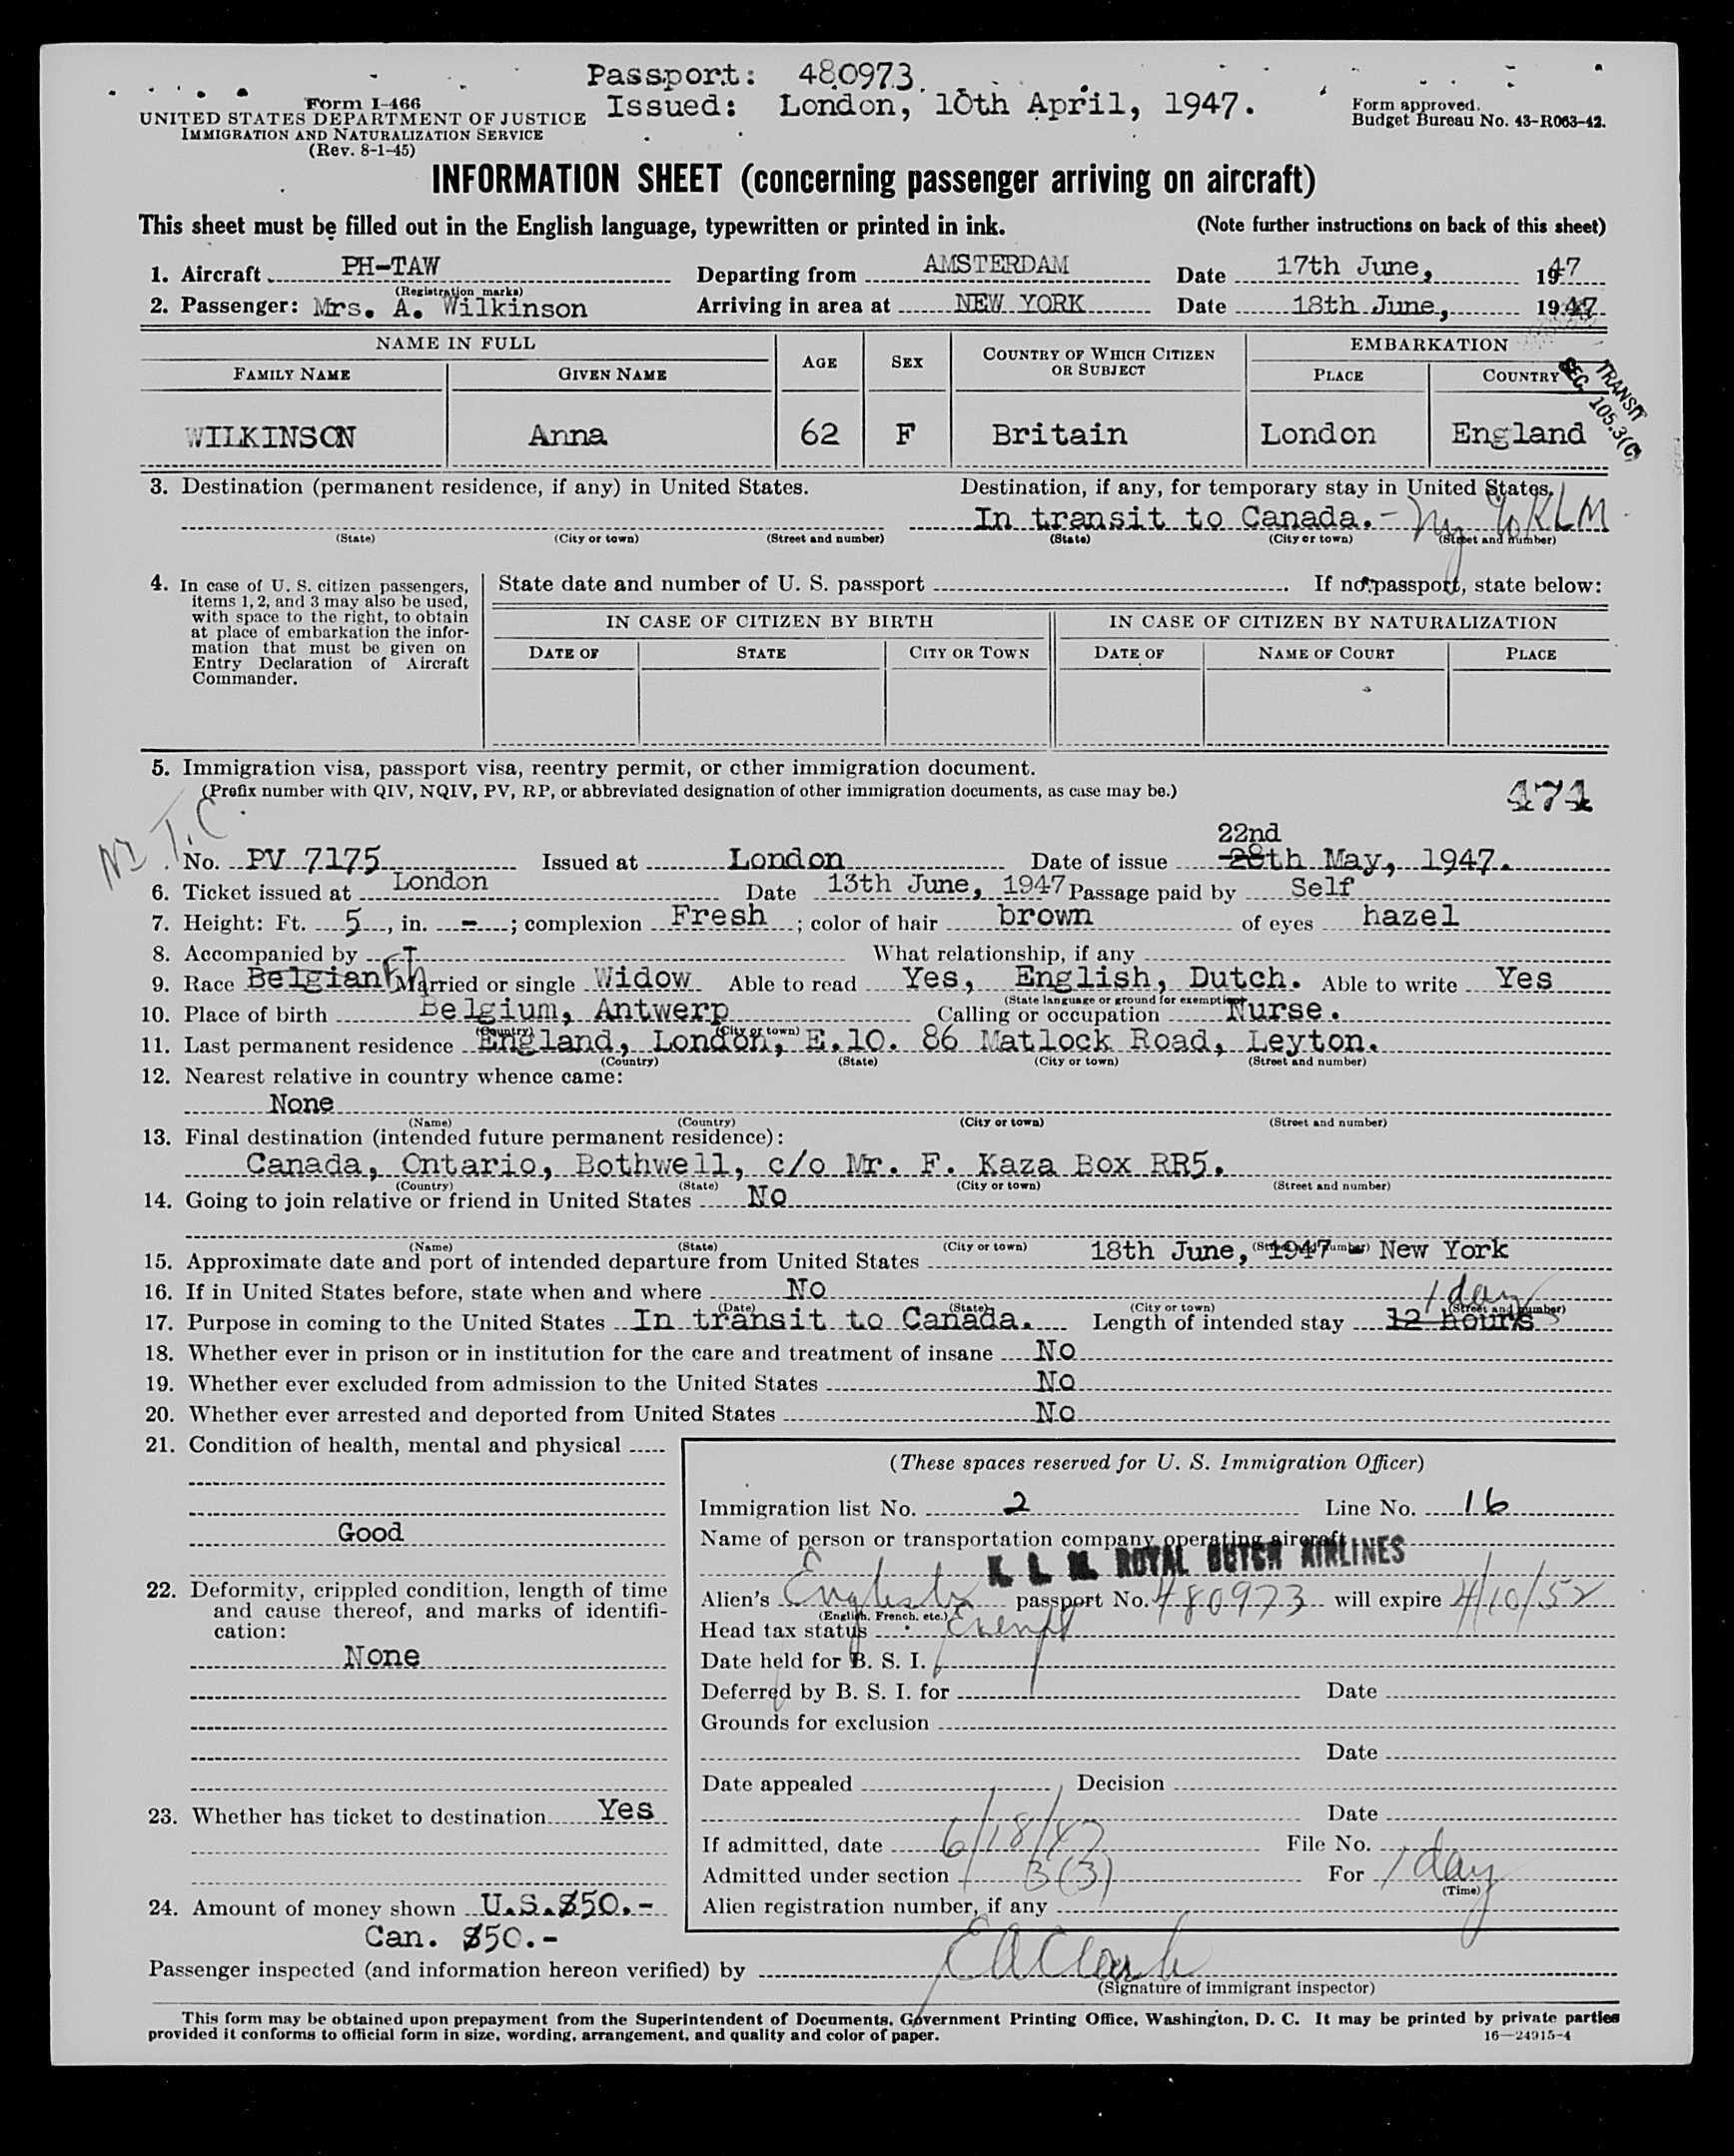 Passport: 480973.
Form I-466
UNITED STATES DEPARTMENT OF JUSTICE
IMMIGRATION AND NATURALIZATION SERVICE
(Rev. 8-1-45)
Issued: London, 10th April, 1947.
Form approved.
Budget Bureau No. 43-R063-42.
INFORMATION SHEET (concerning passenger arriving on aircraft)
This sheet must be filled out in the English language, typewritten or printed in ink. (Note further instructions on back of this sheet)
1. Aircraft PH-TAW Departing from AMSTERDAM Date 17th June, 1947
(Registration marks)
2. Passenger: Mrs. A. Wilkinson Arriving in area at NEW YORK Date 18th June, 1947
NAME IN FULL AGE SEX COUNTRY OF WHICH CITIZEN OR SUBJECT EMBARKATION
FAMILY NAME GIVEN NAME PLACE COUNTRY
TRANSIT
SEC. 105.3(C)
WILKINSON Anna 62 F Britain London England
3. Destination (permanent residence, if any) in United States. Destination, if any, for temporary stay in United States.
In transit to Canada.- Ny c/o KLM
(State) (City or town) (Street and number) (State) (City or town) (Street and number)
4. In case of U. S. citizen passengers,
items 1, 2, and 3 may also be used,
with space to the right, to obtain
at place of embarkation the infor-
mation that must be given on
Entry Declaration of Aircraft
Commander.
State date and number of U. S. passport . If no passport, state below:
IN CASE OF CITIZEN BY BIRTH IN CASE OF CITIZEN BY NATURALIZATION
DATE OF STATE CITY OR TOWN DATE OF NAME OF COURT PLACE
5. Immigration visa, passport visa, reentry permit, or other immigration document.
(Prefix number with QIV, NQIV, PV, RP, or abbreviated designation of other immigration documents, as case may be.)
474
T.C.
22nd
No. PV 7175 Issued at London Date of issue 28th May, 1947.
6. Ticket issued at London Date 13th June, 1947 Passage paid by Self
7. Height: Ft. 5, in. -; complexion Fresh; color of hair brown of eyes hazel
8. Accompanied by What relationship, if any
9. Race Belgian Married or single Widow Able to read Yes, English, Dutch. Able to write Yes
(State language or ground for exemption)
10. Place of birth Belgium, Antwerp Calling or occupation Nurse.
(Country) (City or town)
11. Last permanent residence England, London, E.10. 86 Matlock Road, Leyton.
(Country) (State) (City or town) (Street and number)
12. Nearest relative in country whence came:
None
(Name) (Country) (City or town) (Street and number)
13. Final destination (intended future permanent residence):
Canada, Ontario, Bothwell, c/o Mr. F. Kaza Box RR5.
(Country) (State) (City or town) (Street and number)
14. Going to join relative or friend in United States No
(Name) (State) (City or town) (Street and number)
15. Approximate date and port of intended departure from United States 18th June, 1947 - New York
16. If in United States before, state when and where No
(Date) (State) (City or town) (Street and number)
1 day
17. Purpose in coming to the United States In transit to Canada. Length of intended stay 12 hours
18. Whether ever in prison or in institution for the care and treatment of insane No
19. Whether ever excluded from admission to the United States No
20. Whether ever arrested and deported from United States No
21. Condition of health, mental and physical
Good
22. Deformity, crippled condition, length of time
and cause thereof, and marks of identifi-
cation:
None
23. Whether has ticket to destination Yes
24. Amount of money shown U.S.$50.-
Can. $50.-
(These spaces reserved for U. S. Immigration Officer)
Immigration list No. 2 Line No. 16
Name of person or transportation company operating aircraft
K. L. M. ROYAL DUTCH AIRLINES
Alien's English passport No. 480973 will expire 4/10/52
(English, French, etc.)
Head tax status Exempt
Date held for B. S. I.
Deferred by B. S. I. for Date
Grounds for exclusion
Date
Date appealed Decision
Date
If admitted, date 6/18/47 File No.
Admitted under section 3(3) For 1 day
(Time)
Alien registration number, if any
Passenger inspected (and information hereon verified) by E A Clark
(Signature of immigrant inspector)
This form may be obtained upon prepayment from the Superintendent of Documents, Government Printing Office, Washington, D. C. It may be printed by private parties
provided it conforms to official form in size, wording, arrangement, and quality and color of paper.
16—24915-4